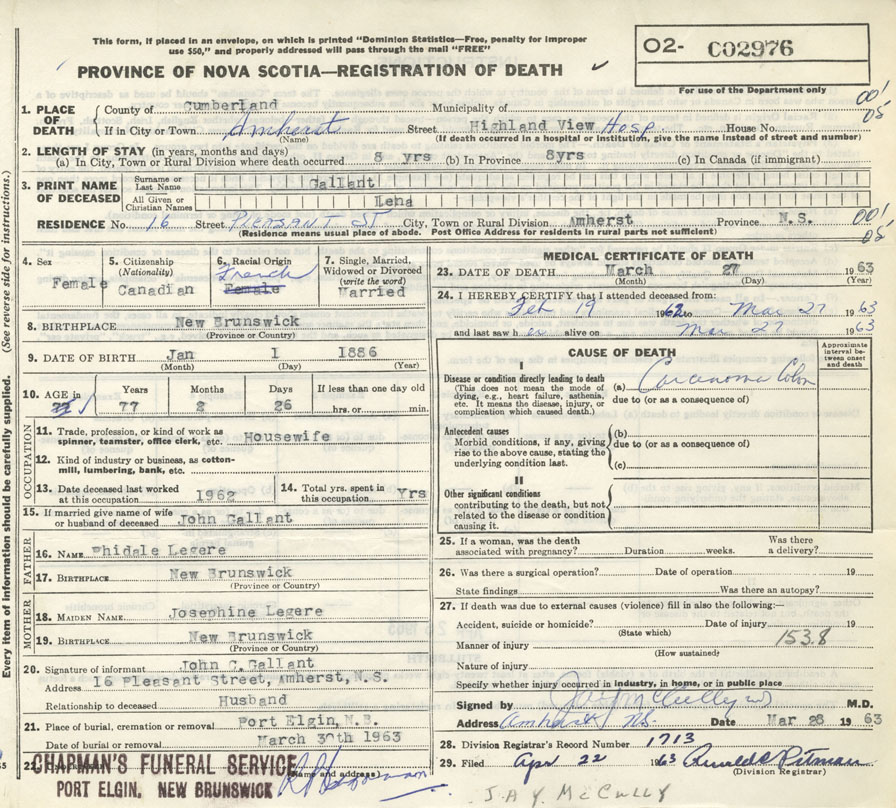 This form, if placed in an envelope, on which is printed "Dominion Statistics—Free, penalty for improper
use $50," and properly addressed will pass through the mail "FREE"
PROVINCE OF NOVA SCOTIA—REGISTRATION OF DEATH
O2- C02976
For use of the Department only
1. PLACE OF DEATH County of Cumberland Municipality of
If in City or Town Amherst Street Highland View Hosp. House No.
(Name) (If death occurred in a hospital or institution, give the name instead of street and number)
001
05
2. LENGTH OF STAY (in years, months and days)
(a) In City, Town or Rural Division where death occurred 8 yrs (b) In Province 8yrs (c) In Canada (if immigrant)
3. PRINT NAME OF DECEASED Surname or Last Name Gallant
All Given or Christian Names Lena
RESIDENCE No. 16 Street PLEASANT ST City, Town or Rural Division Amherst Province N.S.
(Residence means usual place of abode. Post Office Address for residents in rural parts not sufficient)
001
05
Every item of information should be carefully supplied. (See reverse side for instructions.)
4. Sex
Female
5. Citizenship
(Nationality)
Canadian
6. Racial Origin
French
Female
7. Single, Married,
Widowed or Divorced
(write the word)
Married
8. BIRTHPLACE New Brunswick
(Province or Country)
9. DATE OF BIRTH Jan 1 1886
(Month) (Day) (Year)
10. AGE in
Years Months Days If less than one day old
77 2 26 hrs. or min.
OCCUPATION
11. Trade, profession, or kind of work as
spinner, teamster, office clerk, etc. Housewife
12. Kind of industry or business, as cotton-
mill, lumbering, bank, etc.
13. Date deceased last worked
at this occupation 1962
14. Total yrs. spent in
this occupation Yrs
15. If married give name of wife
or husband of deceased John Gallant
FATHER
16. NAME Phidale Legere
17. BIRTHPLACE New Brunswick
(Province or Country)
MOTHER
18. MAIDEN NAME Josephine Legere
19. BIRTHPLACE New Brunswick
(Province or Country)
20. Signature of informant John C. Gallant
Address 16 Pleasant Street, Amherst, N.S.
Relationship to deceased Husband
21. Place of burial, cremation or removal Port Elgin, N.B.
Date of burial or removal March 30th 1963
22.
CHAPMAN'S FUNERAL SERVICE
(Name and address)
PORT ELGIN, NEW BRUNSWICK
MEDICAL CERTIFICATE OF DEATH
23. DATE OF DEATH March 27 1963
(Month) (Day) (Year)
24. I HEREBY CERTIFY that I attended deceased from:
Feb 19 1962 to Mar 27 1963
and last saw her alive on Mar 27 1963
CAUSE OF DEATH
Approximate interval between onset and death
I
Disease or condition directly leading to death
(This does not mean the mode of
dying, e.g., heart failure, asthenia,
etc. It means the disease, injury, or
complication which caused death.)
(a) Carcinoma Colon
due to (or as a consequence of)
Antecedent causes
Morbid conditions, if any, giving
rise to the above cause, stating the
underlying condition last.
(b)
due to (or as a consequence of)
(c)
II
Other significant conditions
contributing to the death, but not
related to the disease or condition
causing it.
25. If a woman, was the death
associated with pregnancy? Duration weeks. Was there
a delivery?
26. Was there a surgical operation? Date of operation 19
State findings Was there an autopsy?
27. If death was due to external causes (violence) fill in also the following:—
Accident, suicide or homicide? Date of injury 19
(State which)
153.8
Manner of injury
(How sustained)
Nature of injury
Specify whether injury occurred in industry, in home, or in public place
Signed by Jay McCully MD M.D.
Address Amherst NS. Date Mar 28 1963
28. Division Registrar's Record Number 1713
29. Filed Apr 22 1963 Pitman
(Division Registrar)
JAY McCULLY